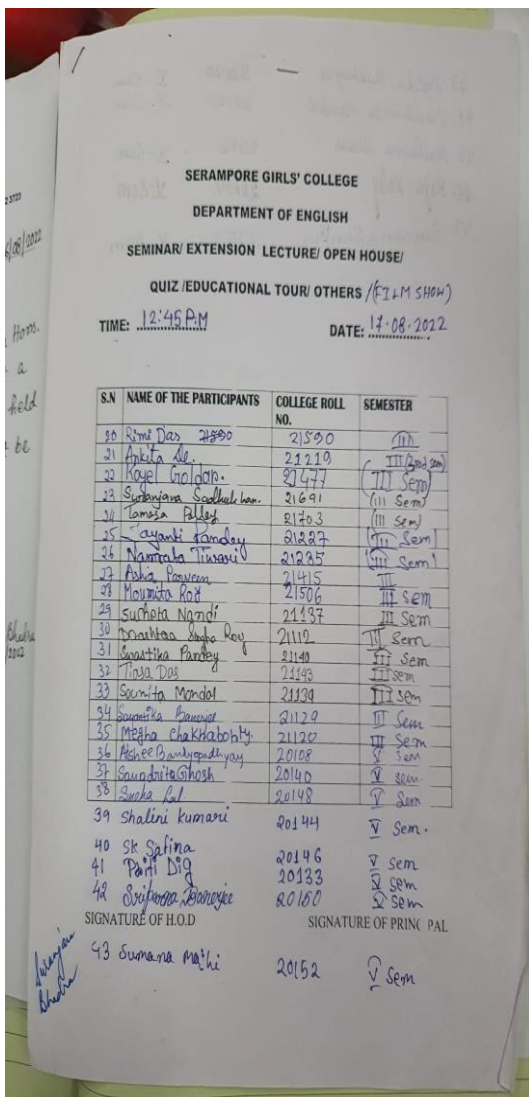 3720
6/08/2022
Hons.
a
held
be
Bhadra
2022
SERAMPORE GIRLS' COLLEGE
DEPARTMENT OF ENGLISH
SEMINAR/ EXTENSION LECTURE/ OPEN HOUSE/
QUIZ /EDUCATIONAL TOUR/ OTHERS /(FILM SHOW)
TIME: 12:45 P.M DATE: 17.08.2022
S.N NAME OF THE PARTICIPANTS COLLEGE ROLL NO. SEMESTER
20 Rimi Das 21590 21590 III
21 Ankita De. 21219 III (3rd sem)
22 Koyel Goldar. 21477 (III Sem)
23 Suranjana 21691 (III Sem)
24 Tamasa Palley 21703 (III Sem)
25 Jayanti Pandey 21227 (III Sem)
26 Namrata Tiwari 21235 (III Sem)
27 Ashia Parveen 21415 III
28 Moumita Roy 21506 III Sem
29 Sucheta Nandi 21137 III Sem
30 Roy 21112 III Sem
31 Swastika Pandey 21140 III Sem
32 Tiasa Das 21143 III sem
33 Soumita Mondal 21139 III sem
34 Sayantika Banerjee 21129 III Sem
35 Megha Chakraborty. 21120 III Sem
36 Aishee Bandyopadhyay 20108 V Sem
37 Soundrita Ghosh 20140 V sem
38 Sneha Lal 20148 V Sem
39 Shalini Kumari 20144 V Sem.
40 Sk Safina 20146 V sem
41 Paiti Dig 20133 V Sem
42 Sriparna Banerjee 20150 V Sem
SIGNATURE OF H.O.D SIGNATURE OF PRINC PAL
43 Sumana Maihi 20152 V Sem
Suranjana
Bhadra